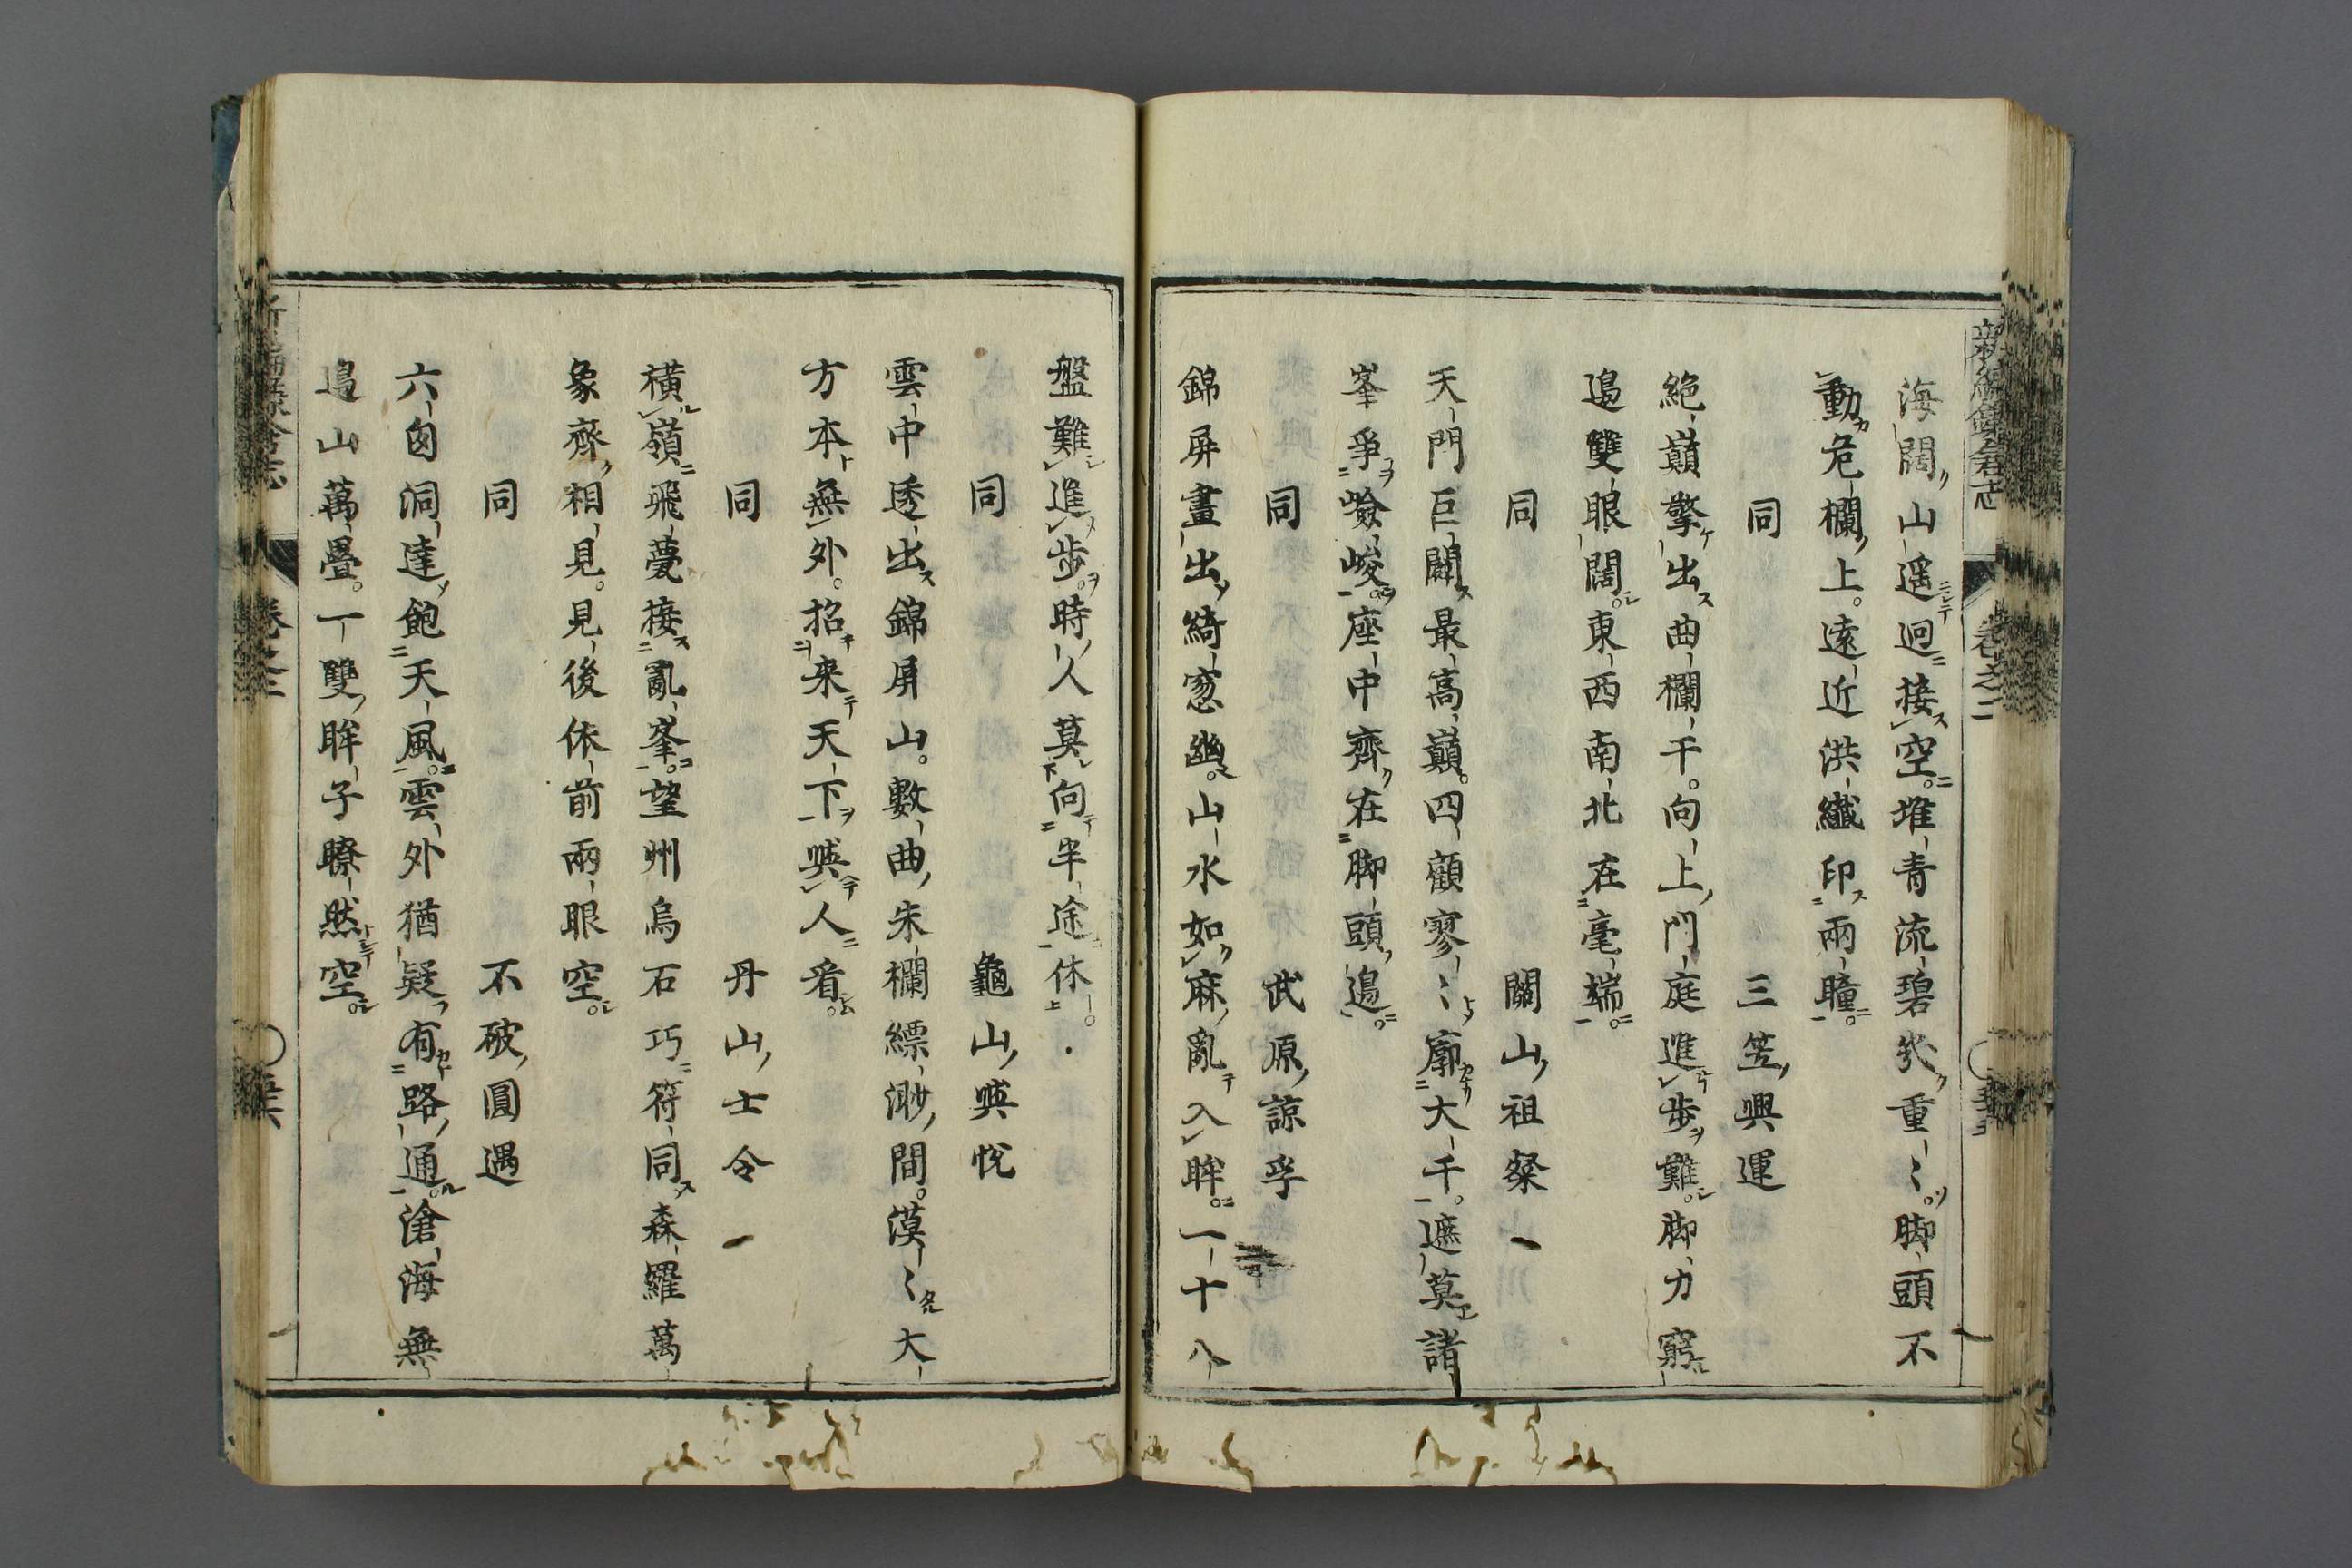 海闊山遥迥接空堆青流碧幾重〻脚頭不
動危欄上遠近洪纎印兩瞳
同 三笠興運
絶巓擎出曲欄干向上門庭進歩難脚力窮
邉雙眼闊東西南北在毫端
同 關山祖粲
天門巨闢最高巓四顧寥〻廓大千遮莫諸
峯爭嶮峻座中齊在脚頭邉
同 武原諒孚
錦屏畫出綺窓幽山水如麻亂入眸一十八
盤難進歩時人莫向半途休
同 龜山興悅
雲中透出錦屏山數曲朱欄縹渺間漠〻大
方本無外招来天下與人看
同 丹山士令
横嶺飛甍接亂峯望州烏石巧符同森羅萬
象齊相見見後依前兩眼空
同 不破圓遇
六凾洞達飽天風雲外猶疑有路通滄海無
邉山萬疊一雙眸子瞭然空
卷之二